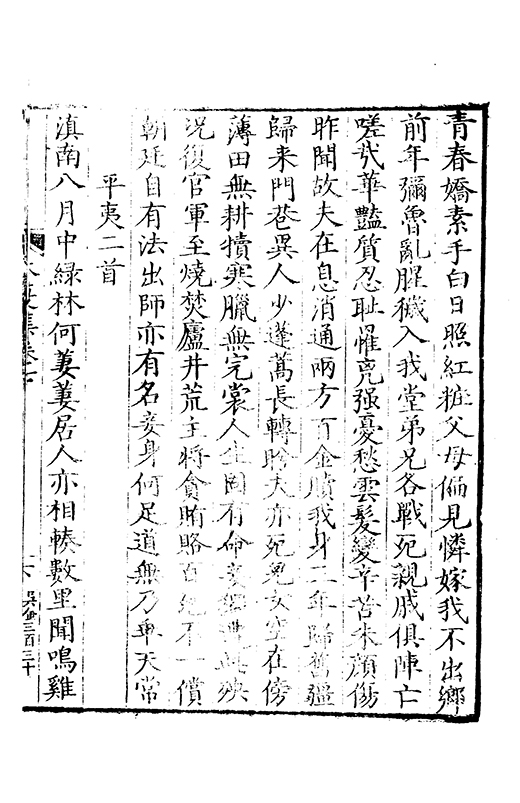 青春嬌素手白日照紅粧父母偏見憐嫁我不出鄉
前年彌魯亂腥穢入我堂弟兄各戰死親戚俱陣亡
嗟哉華豔質忍恥懼兇强憂愁雲髮變辛苦朱顔傷
昨聞故夫在息消通兩方百金贖我身二年歸舊疆
歸来門巷異人少蓬蒿長轉盻夫亦死兒女空在傍
薄田無耕犢寒臘無完裳人生固有命妾獨
况復官軍至燒焚廬井荒主將貪賄賂百不一償
朝廷自有法出師亦有名妾身何足道無乃乖天常
平夷二首
滇南八月中綠林何萋萋居人亦相輳數里聞鳴雞
集卷
六
吳
三百三十